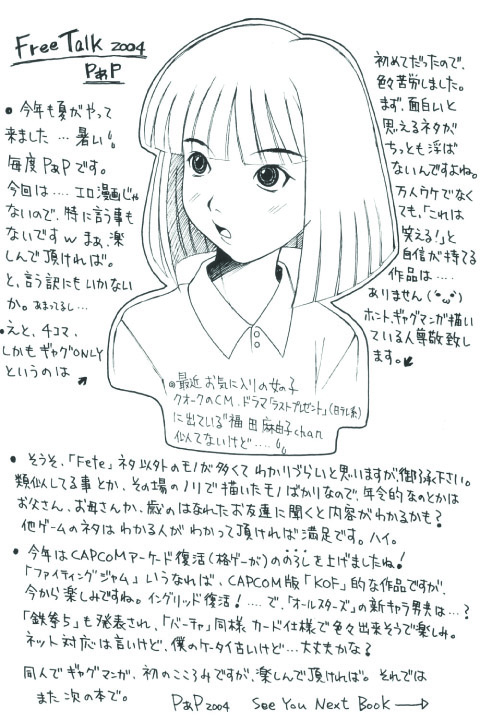 Free Talk 2004
PあP
● 今年も夏がやって
来ました…暑い
毎度PあPです。
今回は‥‥エロ漫画じゃ
ないので、特に言う事も
ないですw まぁ、楽
しんで頂ければ。
と、言う訳にもいかない
か。あまってるし…
●えと、4コマ、
しかもギャグONLY
というのは
初めてだったので、
色々苦労しました。
まず、面白いと
思えるネタが
ちっとも浮ば
ないんですよね。
万人ウケでなく
ても、「これは
笑える!」と
自信が持てる
作品は‥‥
ありません(´・ω・`)
ホント、ギャグマンガ描い
ている人尊敬致し
ます。
◎最近お気に入りの女の子
クオークのCM、ドラマ「ラストプレゼント」(日テレ系)
に出ている"福田麻由子chan
似てないけど‥‥
● そうそ、「Fete」ネタ以外のモノが多くてわかりづらいと思いますが、御了承下さい。
類似してる事とか、その場のノリで描いたモノばかりなので、年令的なのとかは
お父さん、お母さんか、歳のはなれたお友達に聞くと内容がわかるかも?
他ゲームのネタはわかる人がわかって頂ければ満足です。ハイ。
● 今年はCAPCOMアーケード復活(格ゲーが)ののろしを上げましたね!
「ファイティングジャム」いうなれば、CAPCOM版「KOF」的な作品ですが、
今から楽しみですね。イングリッド復活!‥‥で、「オールスターズ」の新キャラ男衆は…?
「鉄拳5」も発表され、「バーチャ」同様カード仕様で色々出来そうで楽しみ。
ネット対応は言いけど、僕のケータイ古いけど…大丈夫かな?
同人でギャグマンガ、初のこころみですが、楽しんで頂ければ。それでは
また次の本で。 PあP 2004 See You Next Book